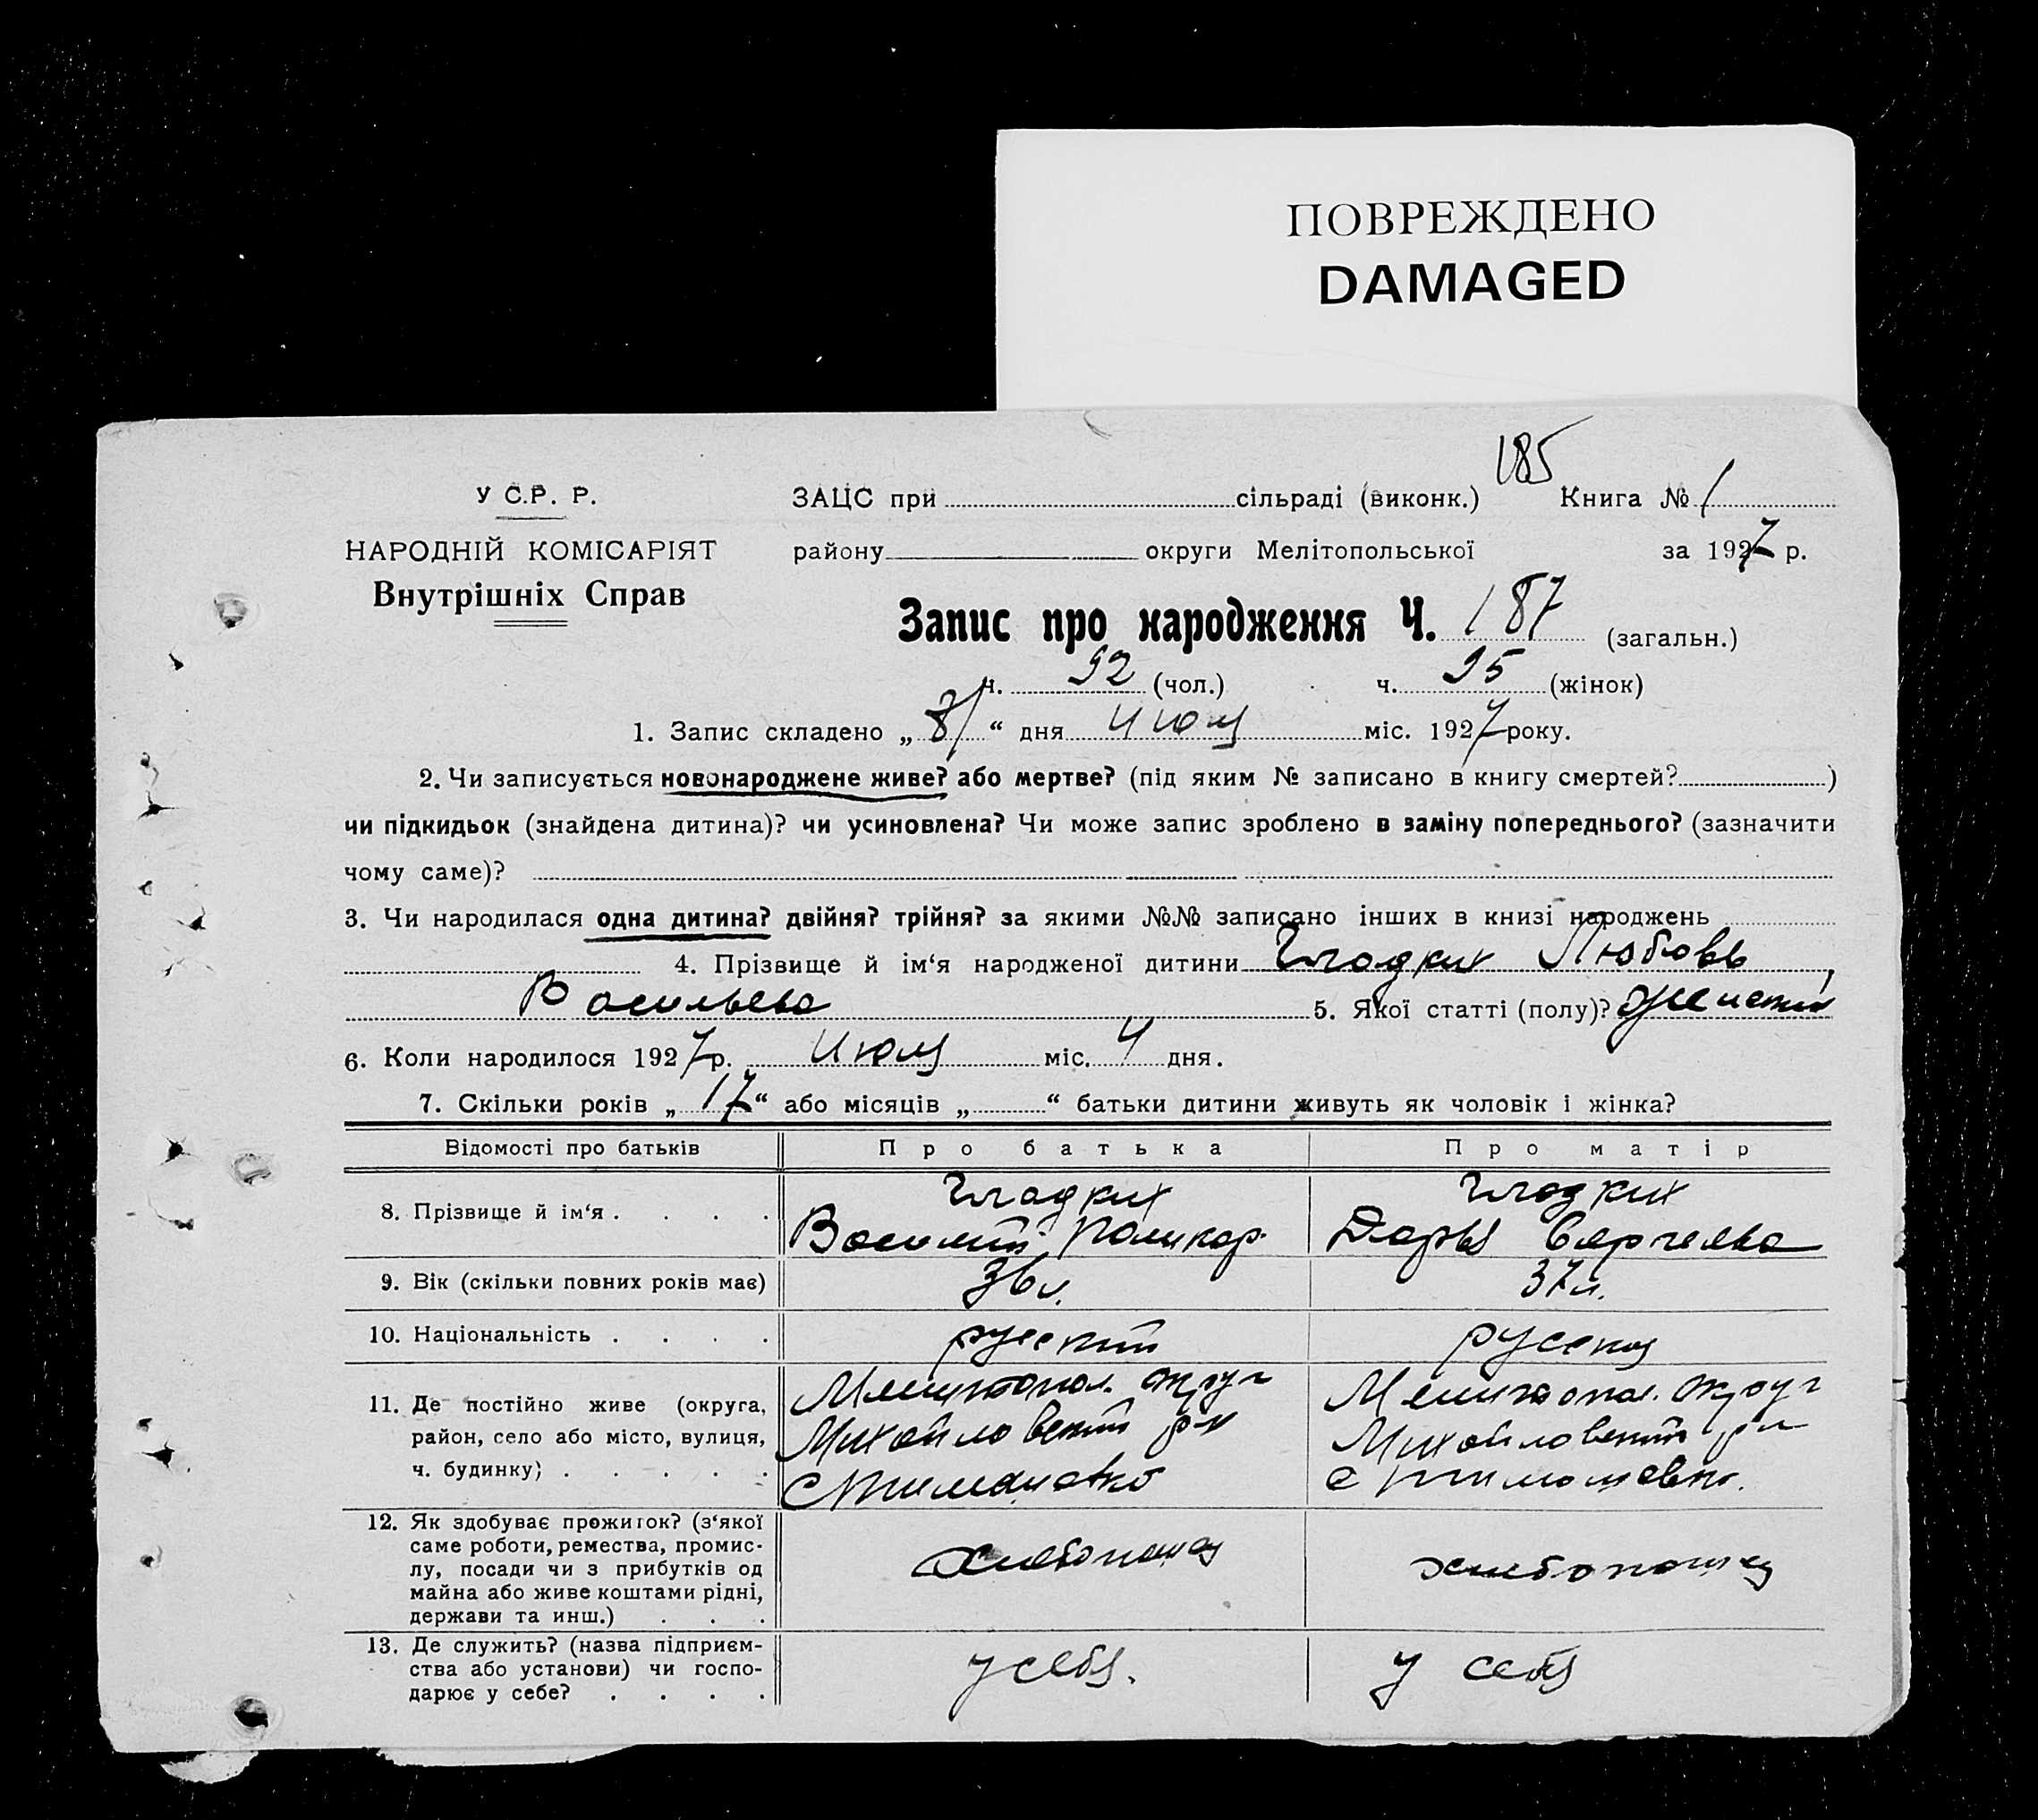 ПОВРЕЖДЕНО
DAMAGED
185
У С.Р. Р.
ЗАЦС при сільраді (виконк.) Книга № 1
НАРОДНІЙ КОМІСАРІЯТ
району округи Мелітопольської за 1927 р.
Внутрішніх Справ
Запис про народження Ч. 187 (загальн.)
ч. 92 (чол.) ч. 95 (жінок)
1. Запис складено „ 8 “ дня Июля міс. 1927 року.
2. Чи записується новонароджене живе? або мертве? (під яким № записано в книгу смертей? )
чи підкидьок (знайдена дитина)? чи усиновлена? Чи може запис зроблено в заміну попереднього? (зазначити
чому саме)?
3. Чи народилася одна дитина? двійня? трійня? за якими №№ записано інших в книзі народжень
4. Прізвище й ім‘я народженої дитини Гладких Любовь
Васильева 5. Якої статті (полу)?
6. Коли народилося 1927 р. Июля міс. 4 дня.
7. Скільки років „ 17 “ або місяців „ “ батьки дитини живуть як чоловік і жінка?
Відомості про батьків Про батька Про матір
8. Прізвище й ім‘я . . . . Гладких Гладких
Василий Поликар. Дарья Сергеева
9. Вік (скільки повних років має) 36 л. 37 л.
10. Національність . . . . русский русская
11. Де постійно живе (округа, Мелитопол. округ Мелитопол. округ
район, село або місто, вулиця, Михайловский р-н Михайловский р-н
ч. будинку) . . . . . с Тимашовка с Тимашевка.
12. Як здобуває прожиток? (з‘якої
саме роботи, ремества, промис-
лу, посади чи з прибутків од хлебопашец хлебопашец
майна або живе коштами рідні,
держави та инш.) . . .
13. Де служить? (назва підприєм-
ства або установи) чи госпо- у себя. у себя
дарює у себе? . . . .